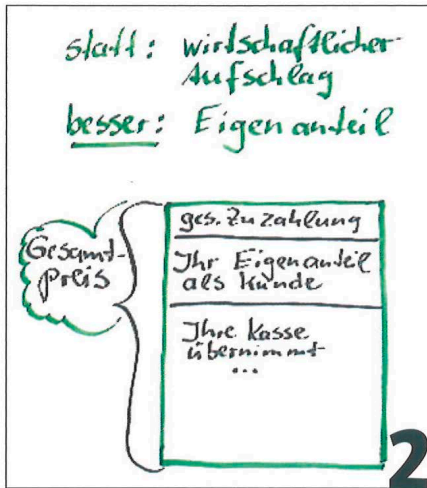 statt: wirtschaftlicher
Aufschlag
besser: Eigenanteil
Gesamt-
preis
ges. Zuzahlung
Ihr Eigenanteil
als Kunde
Ihre Kasse
übernimmt
...
2